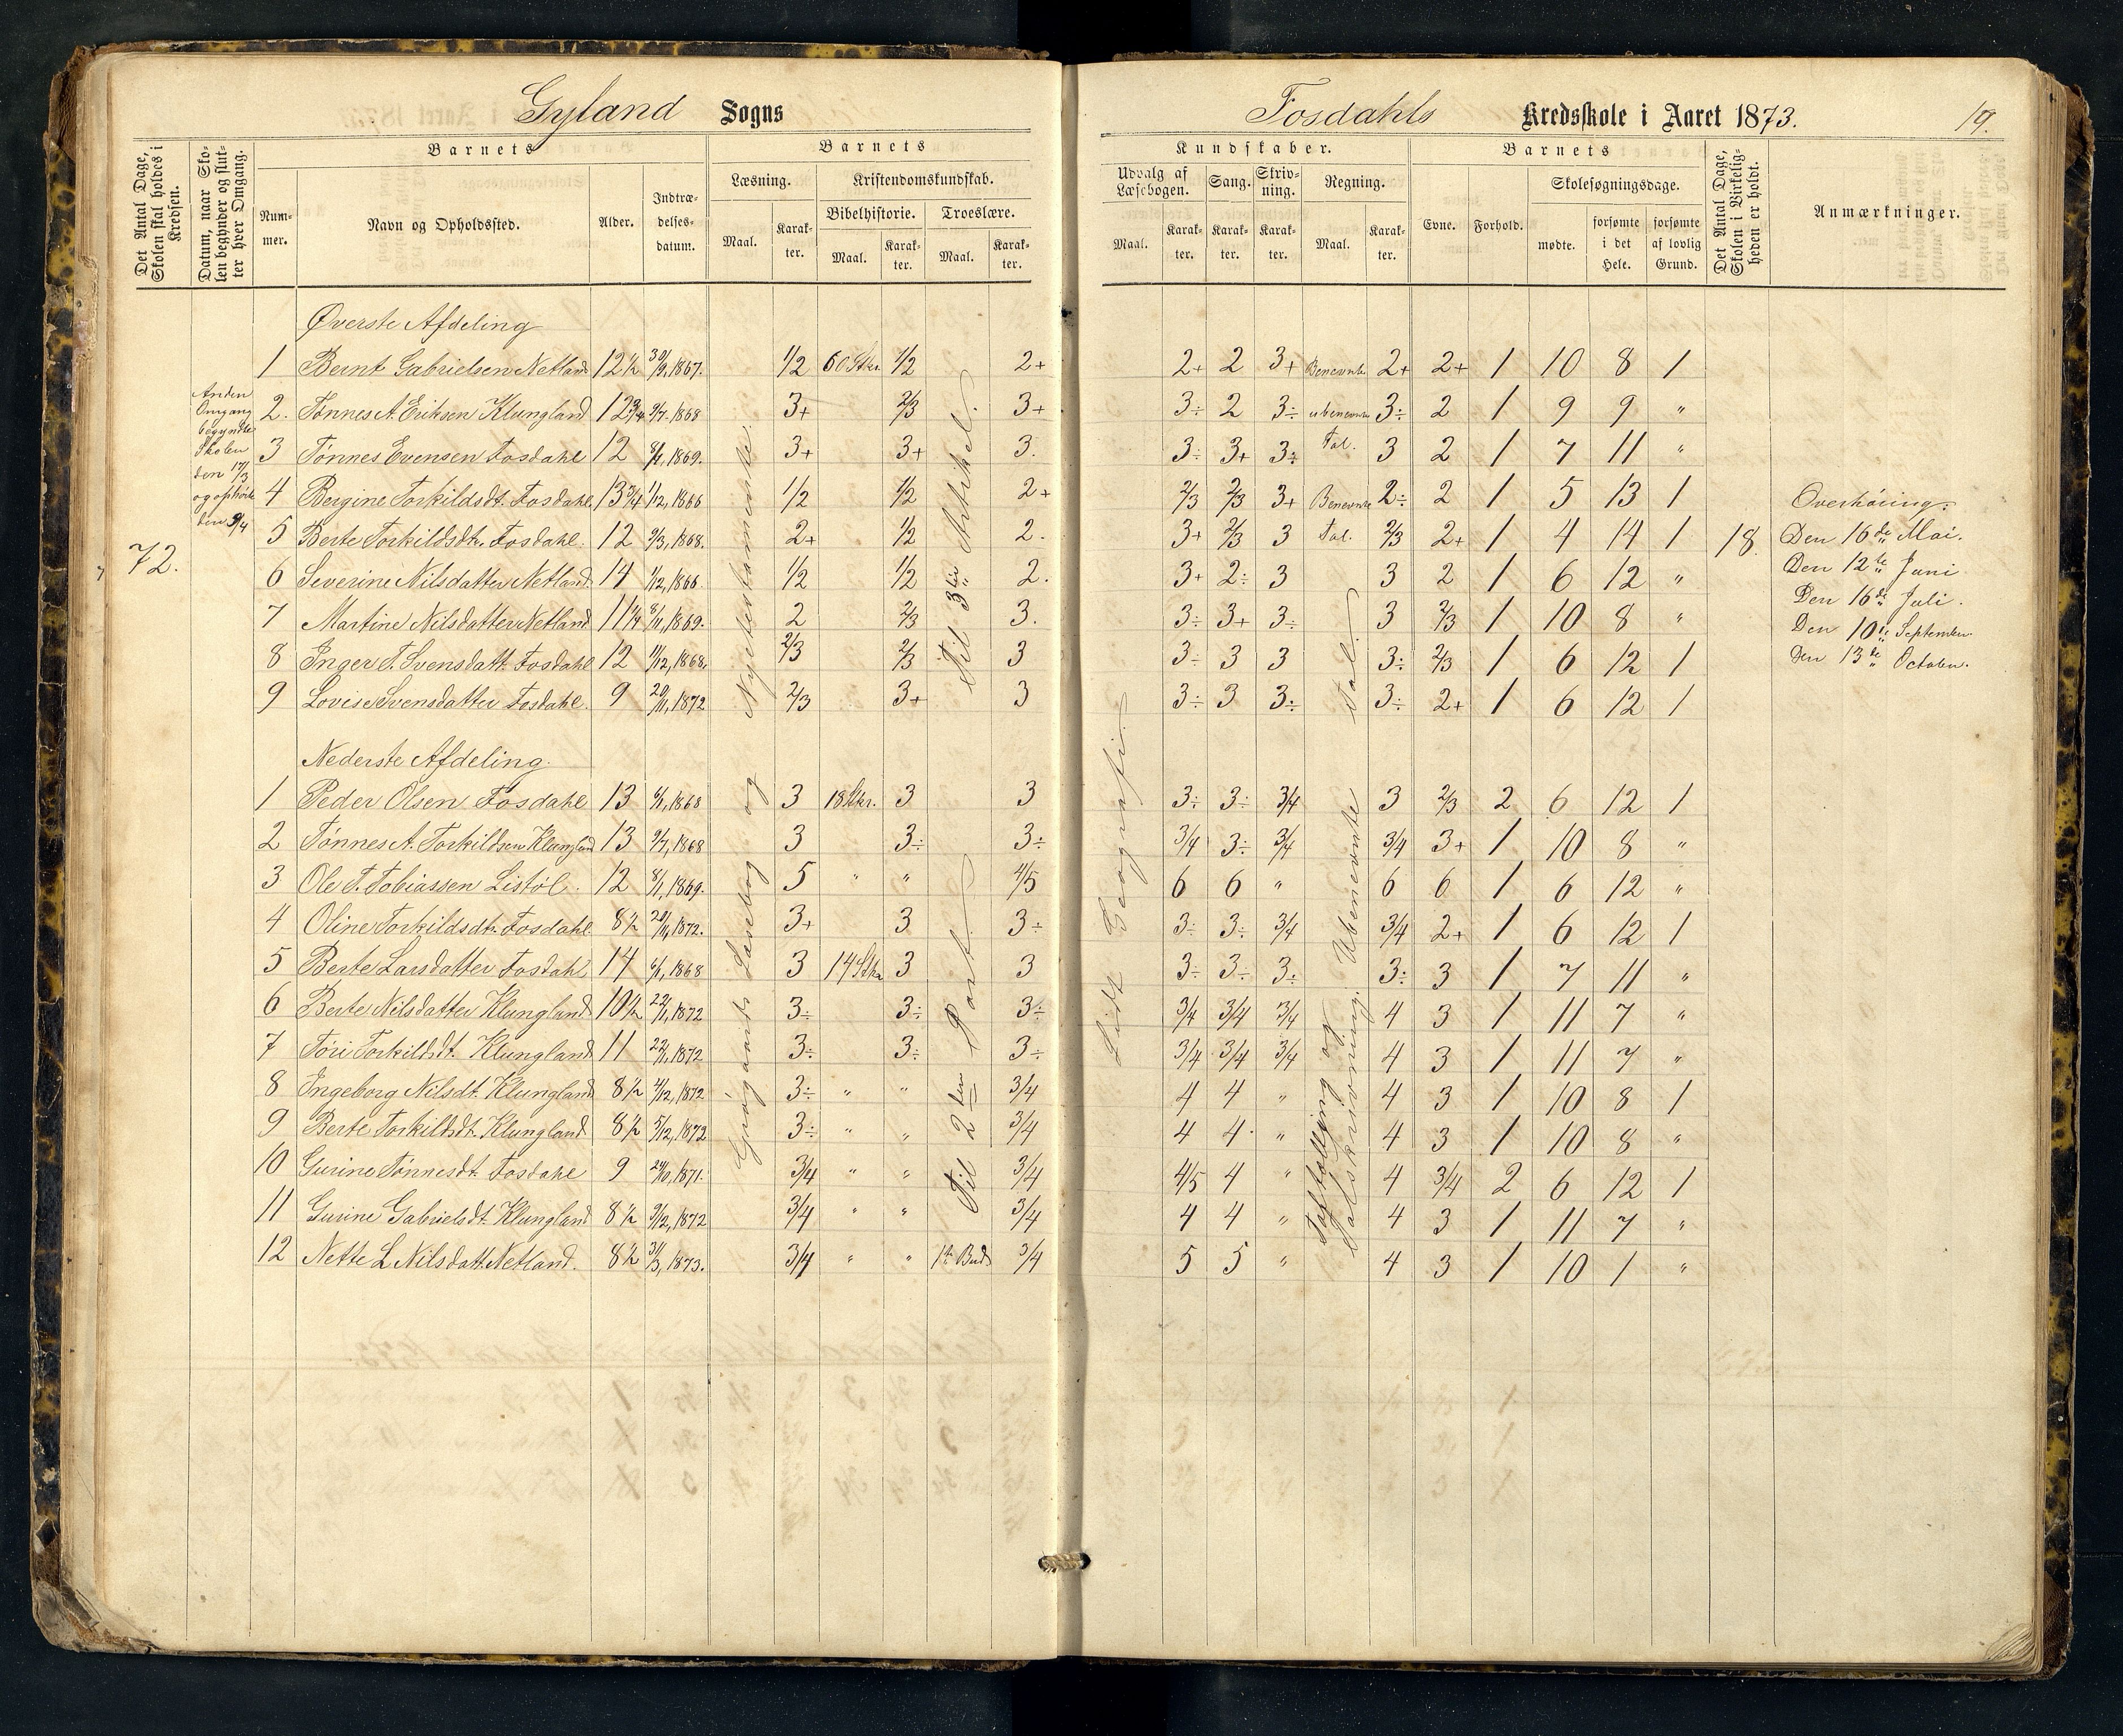 Gyland Sogns
Fosdahls Kredsskole i Aaret 1873. 19.
Det Antal Dage, Skolen skal holdes i Kredsen.
Datum, naar Skolen begynder og slutter hver Omgang.
Barnets
Nummer.
Navn og Opholdssted.
Alder.
Indtrædelsesdatum.
Barnets
Læsning.
Maal.
Karakter.
Kristendomskundskab.
Bibelhistorie.
Maal.
Karakter.
Troeslære.
Maal.
Karakter.
Kundskaber.
Udvalg af Læsebogen.
Maal.
Karakter.
Sang.
Karakter.
Skrivning.
Karakter.
Regning.
Maal.
Karakter.
Barnets
Evne.
Forhold.
Skolesøgningsdage.
mødte.
forsømte i det Hele.
forsømte af lovlig Grund.
Det Antal Dage, Skolen i Virkeligheden er holdt.
Anmærkninger.
72.
Anden
Omgang
begyndte
Skolen
den 17/3
og ophørte
den 9/4
Øverste Afdeling
1 Bernt Gabrielsen Netland 12 1/2 30/9, 1867. 1/2 60 Stkr. 1/2 2+ 2+ 2 3+ Benevnte 2+ 2+ 1 10 8 1
2. Tønnes A. Eriksen Klungland 12 3/4 9/7. 1868 3+ 2/3 3+ 3÷ 2 3÷ ubenevnte 3÷ 2 1 9 9 "
3 Tønnes Evensen Fosdahl 12 8/1, 1869. 3+ 3+ 3. 3÷ 3+ 3÷ Tal. 3 2 1 7 11 "
4 Bergine Torkildsdt. Fosdahl. 13 3/4 1/12, 1866 1/2 1/2 2+ 2/3 2/3 3+ Benevnte 2÷ 2 1 5 13 1
5 Berte Torkildsdtr. Fosdahl. 12 9/3, 1868. 2+ 1/2 2. 3+ 2/3 3 Tal. 2/3 2+ 1 4 14 1
6 Severine Nilsdatter Netland. 14 1/12, 1866. 1/2 1/2 2. 3+ 2÷ 3 3 2 1 6 12 "
7 Martine Nilsdatter Netland 11 1/4 8/11, 1869. 2 2/3 3. 3÷ 3+ 3÷ 3 2/3 1 10 8 "
8 Inger T. Svensdatt. Fosdahl 12 11/12, 1868. 2/3 2/3 3 3÷ 3 3 3÷ 2/3 1 6 12 1
9 Lovise Svensdatter Fosdahl. 9 20/11, 1872 2/3 3+ 3 3÷ 3 3÷ 3÷ 2+ 1 6 12 1
Nederste Afdeling.
1 Peder Olsen Fosdahl 13 6/1, 1868 3 18 Stkr. 3 3 3÷ 3÷ 3/4 3 2/3 2 6 12 1
2 Tønnes A. Torkildsen Klungland 13 9/7, 1868 3 3÷ 3÷ 3/4 3÷ 3/4 3/4 3+ 1 10 8 "
3 Ole T. Tobiassen Listøl. 12 8/1, 1869. 5 " " 4/5 6 6 " 6 6 1 6 12 "
4 Oline Torkildsdtr. Fosdahl. 8 1/2 20/11, 1872. 3+ 3 3÷ 3÷ 3÷ 3/4 3/4 2+ 1 6 12 1
5 Berte Larsdatter Fosdahl 14 6/1, 1868 3 14 Stkr 3 3 3÷ 3÷ 3÷ 3÷ 3 1 7 11 "
6 Berte Nilsdatter Klungland 10 1/2 22/1, 1872 3÷ 3÷ 3÷ 3/4 3/4 3/4 4 3 1 11 7 "
7 Tøri Torkildsdt. Klungland 11 22/1, 1872 3÷ 3÷ 3÷ 3/4 3/4 3/4 4 3 1 11 7 "
8 Ingeborg Nilsdt. Klungland 8 1/2 4/12, 1872 3÷ " " 3/4 4 4 " 4 3 1 10 8 1
9 Berte Torkildsdt. Klungland 8 1/2 5/12, 1872 3÷ " " 3/4 4 4 " 4 3 1 10 8 "
10 Gurine Tønnesdt. Fosdahl 9 24/10, 1871. 3/4 " " 3/4 4/5 4 " 4 3/4 2 6 12 1
11 Gurine Gabrielsdt. Klungland 8 1/2 9/2, 1872 3/4 " " 3/4 4 4 " 4 3 1 11 7 "
12 Nette L Nilsdatt. Netland. 8 1/2 31/3, 1873. 3/4 " " 1ste Bud 3/4 5 5 " 4 3 1 10 1 "
Grøgaards Læsebog og Nyetestamente.
Til 3die Artikel.
Til 2den Part.
Lidt Geografi.
Taftælling og
Talskrivning. Ubenevnte Tal.
18.
Overhøring.
Den 16de Mai.
Den 12te Juni
Den 16de Juli.
Den 10de September
Den 13de October.